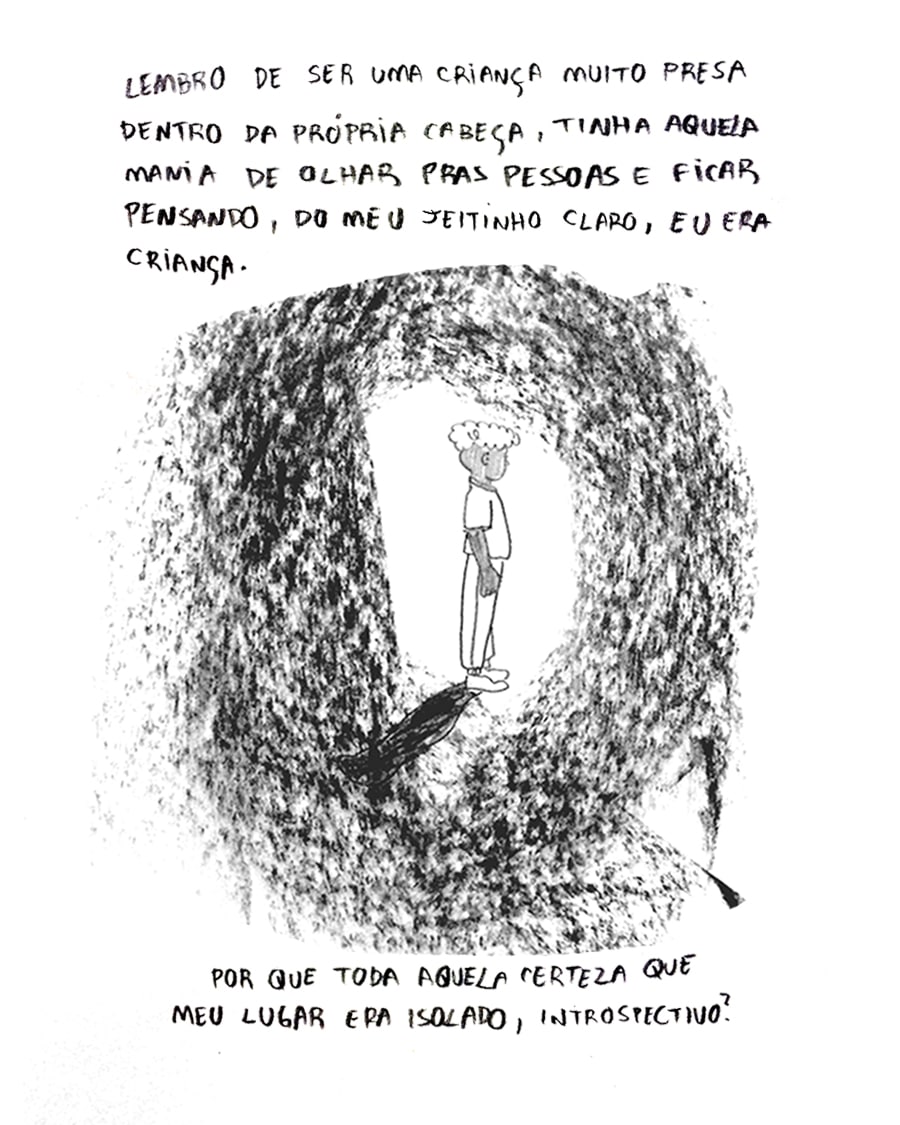 LEMBRO DE SER UMA CRIANÇA MUITO PRESA
DENTRO DA PRÓPRIA CABEÇA, TINHA AQUELA
MANIA DE OLHAR PRAS PESSOAS E FICAR
PENSANDO, DO MEU JEITINHO CLARO, EU ERA
CRIANÇA.
POR QUE TODA AQUELA CERTEZA QUE
MEU LUGAR ERA ISOLADO, INTROSPECTIVO?